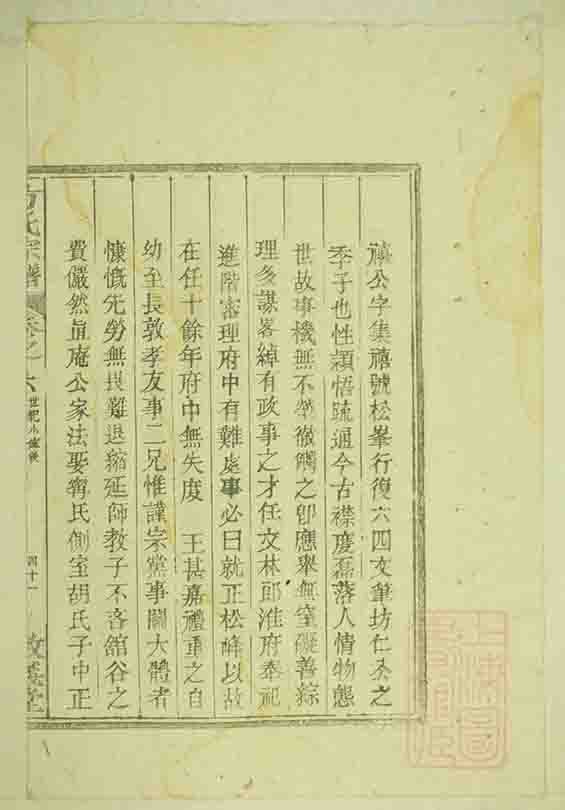 禎公字集禧號松峯行復六四文筆坊仁叅之
季子也性穎悟疏通今古襟度磊落人情物態
世故事機無不瑩徹觸之卽應畢無窒礙善綜
理多謀畧綽有政事之才任文林郎淮府奉祀
進階審理府中有難處事必曰就正松峰以故
在任十餘年府中無失度 王甚嘉禮重之自
幼至長敦孝友事二兄惟謹宗黨事關大體者
慷慨先勞無畏難退縮延師教子不吝舘谷之
費儼然直庵公家法娶甯氏側室胡氏子中正
方氏宗譜 卷之六 世紀小傳後 四十一 敦義堂
上海圖